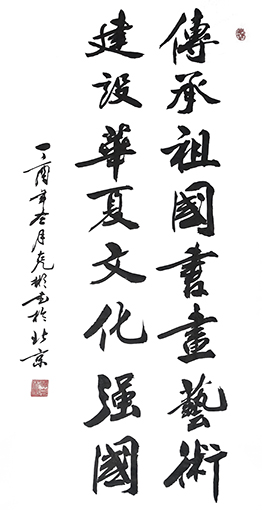 傳承祖國書畫藝術
建設華夏文化强國
丁酉年冬月虎彬書於北京